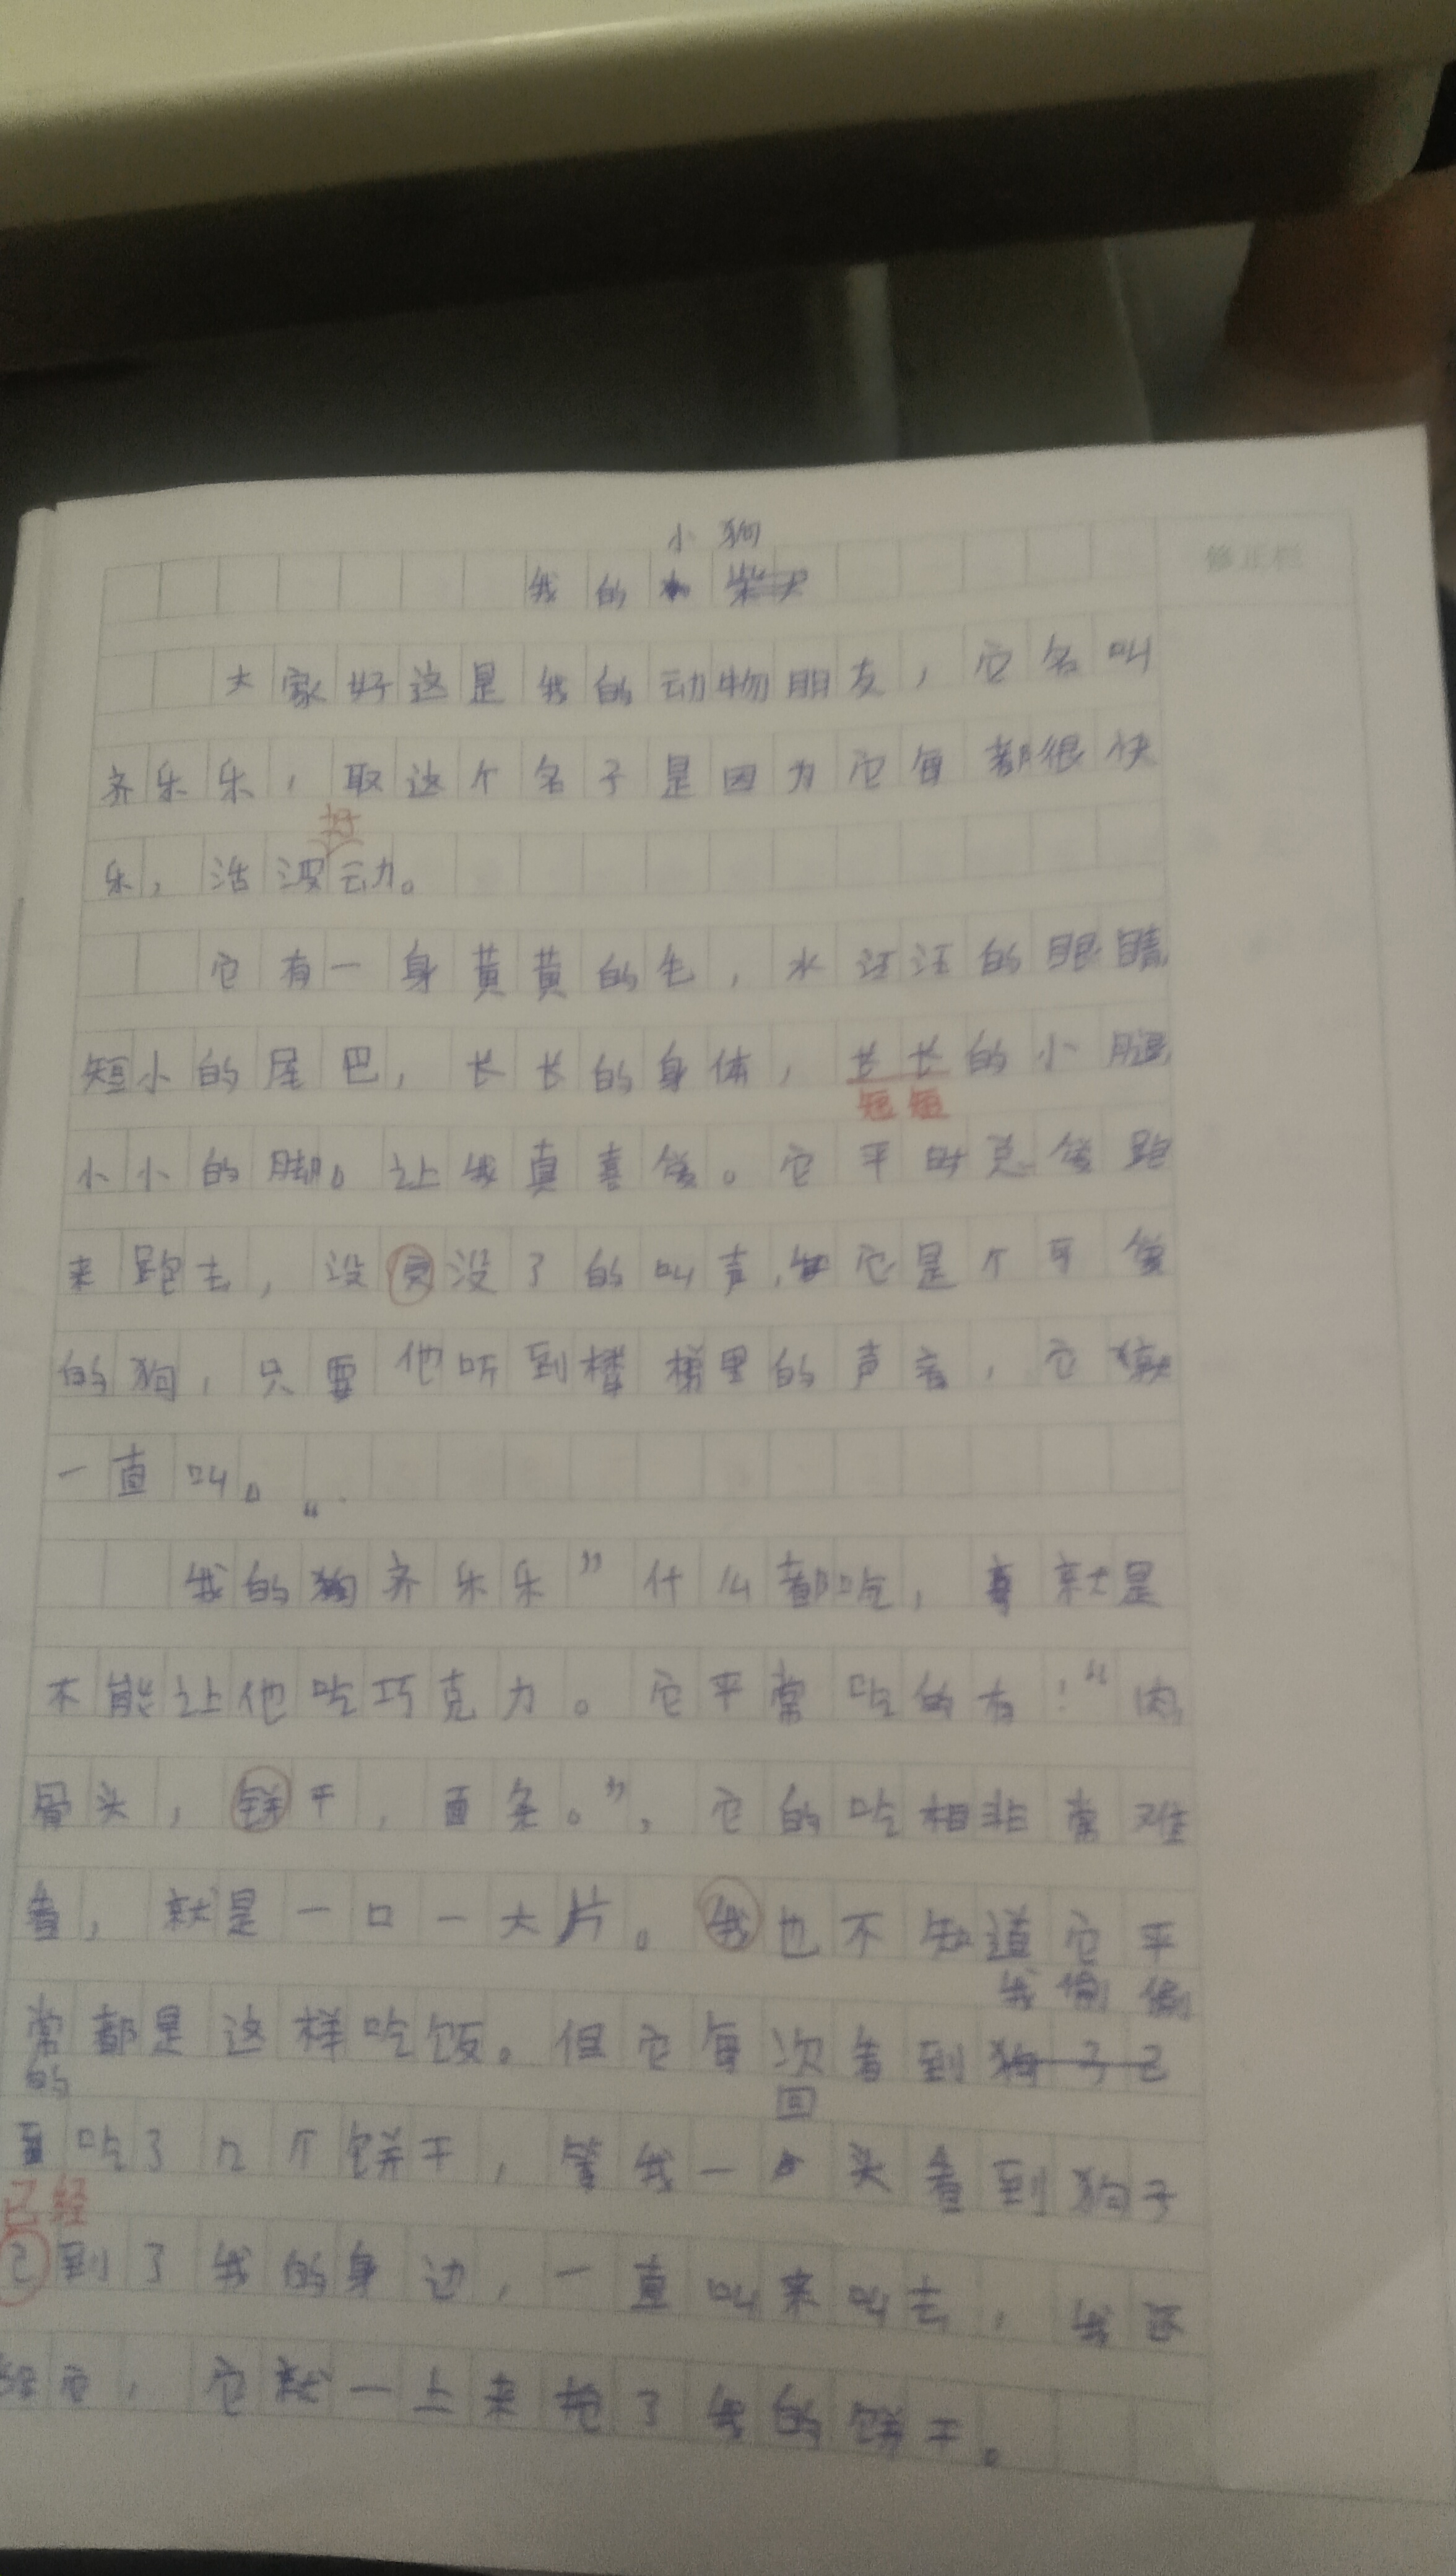 小狗
我的
修正栏
大家好这是我的动物朋友，它名叫
齐乐乐，取这个名子是因力它每都很快
好
乐，活泼动。
它有一身黄黄的毛，水汪汪的眼睛
短小的尾巴，长长的身体，长长的小腿
短短
小小的脚。让我真喜爱。它平时总爱跑
来跑去，没完没了的叫声，它是个可爱
的狗，只要他听到楼梯里的声音，它就
一直叫。
“我的狗齐乐乐”什么都吃，就是
不能让他吃巧克力。它平常吃的有：“肉
骨头，饼干，面条。”，它的吃相非常难
看，就是一口一大片。我也不知道它平
我偷偷
常都是这样吃饭。但它每次看到狗子已
的
回
吃了几个饼干，等我一头看到狗子
已经
已到了我的身边，一直叫来叫去，我还
它，它就一上来抢了我的饼干。